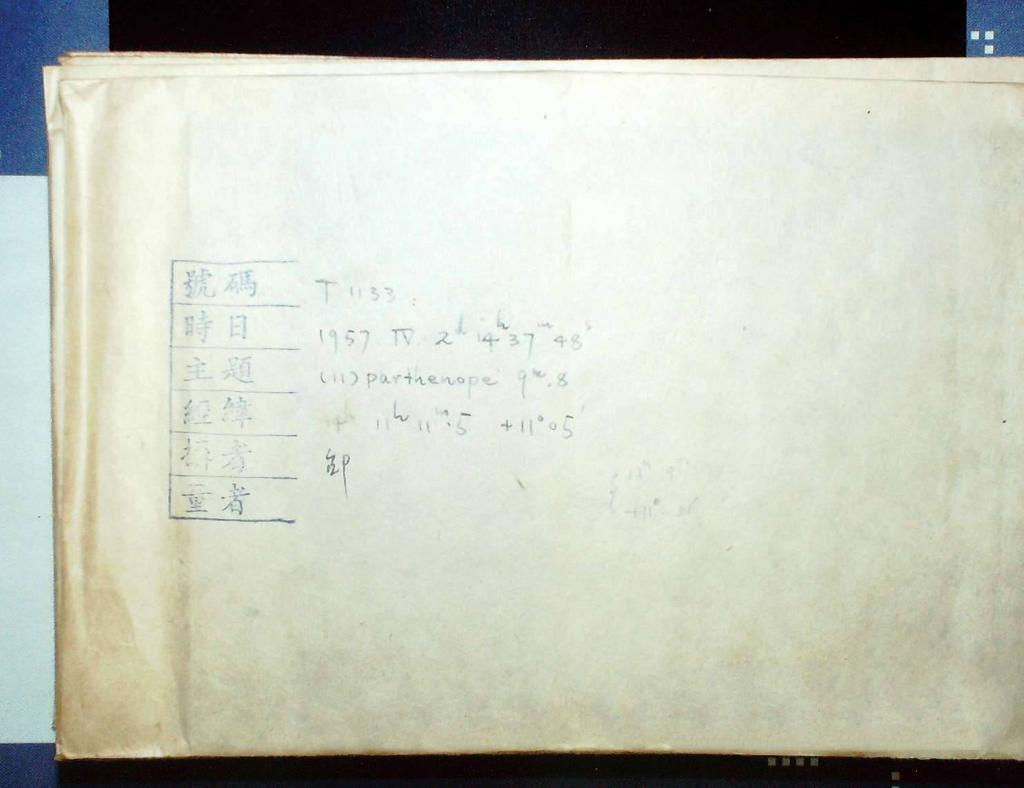 號碼 T 1133.
時日 1957 IV 2ᵈ 14ʰ 37ᵐ 48ˢ
主題 (11) parthenope 9ᵐ.8
經緯 11ʰ 11ᵐ.5 +11°05'
攝者
量者